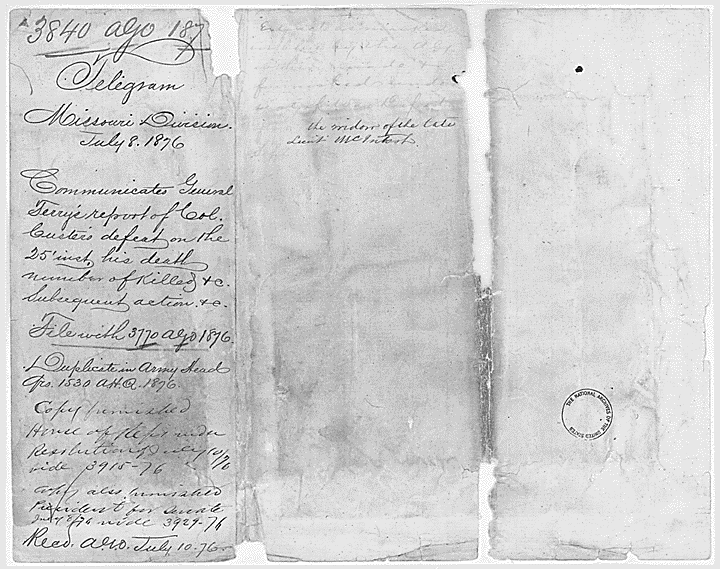 3840 AGO 187
Telegram
Missouri Division.
July 8. 1876
Communicates General
Terry's report of Col.
Custer's defeat on the
25" inst. his death
number of Killed &c.
Subsequent action. &c.
File with 3770 AGO 1876.
Duplicate in Army Head
Qrs. 1530 A.H.Q. 1876.
Copy furnished
House of Reps under
Resolution of July 10/76
vide 3915-76
Copy also furnished
President for Senate
vide 3929-76
Recd. A.G.O. July 10-76.
the widow of the late
Lieut McIntosh.
THE NATIONAL ARCHIVES OF THE UNITED STATES